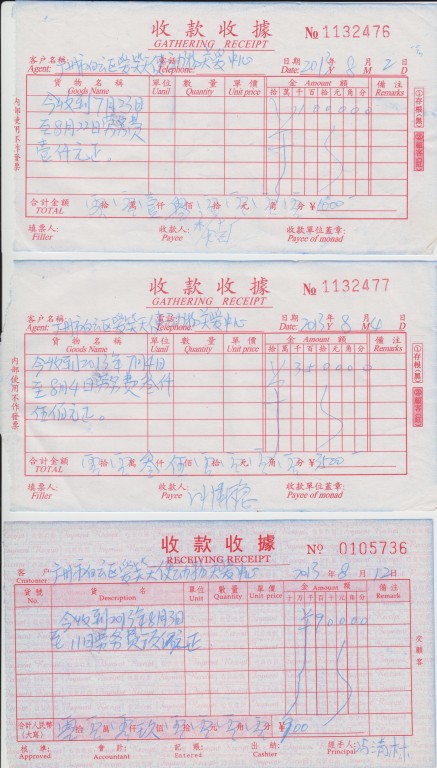 收款收據 № 1132476
GATHERING RECEIPT
客戶名稱: 广州市白云区 电話: 日期 2013年 8月 2日
Agent: Telephone: Date: Y M D
貨物名稱 單位 數量 單價 金額 備注
Goods Name Unit Quantity Unit price Amount Remarks
拾萬千百拾元角分
今收到7月23日
至8月22日劳务费
壹仟元正。
合計金額 拾 萬 壹仟 佰 拾 元 角 分 ¥1000
TOTAL
填票人: 收款人: 收款單位蓋章:
Filler Payee Payee of monad
內部使用不作發票
①存根(黑) ②顧客(紅)
收款收據 № 1132477
GATHERING RECEIPT
客戶名稱: 广州市白云区 电話: 日期 2013年 8月 4日
Agent: Telephone: Date: Y M D
貨物名稱 單位 數量 單價 金額 備注
Goods Name Unit Quantity Unit price Amount Remarks
拾萬千百拾元角分
今收到2013年7月4日
至8月4日劳务费叁仟
伍佰元正。
合計金額 拾 萬 叁仟 伍佰 拾 元 角 分 ¥3500
TOTAL
填票人: 收款人: 收款單位蓋章:
Filler Payee Payee of monad
內部使用不作發票
①存根(黑) ②顧客(紅)
收款收據 № 0105736
RECEIVING RECEIPT
客戶 广州市白云区 2013年 8月 12日
Customer:
貨號 貨名 單位 數量 單價 金額 備注
No. Description Unit Quantity Unit price Amount Remark
十万千百十元角分
今收到2013年8月3日 ¥90000
至11日劳务费玖佰元正
合計人民幣(大寫) 拾 萬 仟 玖佰 拾 元 角 分 ¥900
核準: 會計: 記賬: 出納: 經手人:
Approved Accountant Entered Cashier Principal
交顧客